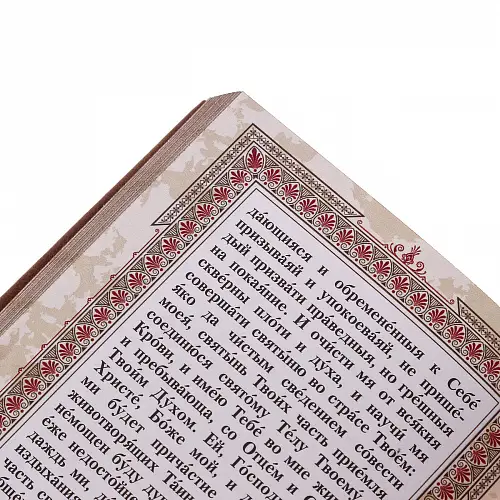 да́ющияся и обременённых к Себе́
призыва́яй и упокоева́яй, не прише́-
дый призвати пра́ведныя, но гре́шныя
на покая́ние. И очи́сти мя от вся́кия
скве́рны пло́ти и ду́ха, и научи́ мя
соверша́ти святы́ню во стра́се Твое́м:
я́ко да чи́стым све́дением со́вести
моея́, святы́нь Твои́х часть прие́мля,
соединю́ся свято́му Те́лу Твоему́ и
Кро́ви, и име́ю Тебе́ во мне жи
и пребыва́юща со Отце́м и
Твои́м Ду́хом. Ей, Госпо
Христе́, Бо́же мой, и д
ми бу́дет прича́стие
животворя́щих Та́
немощен бу́ду ду
е́же недосто́й
даждь ми д
издыха́ни
часть с